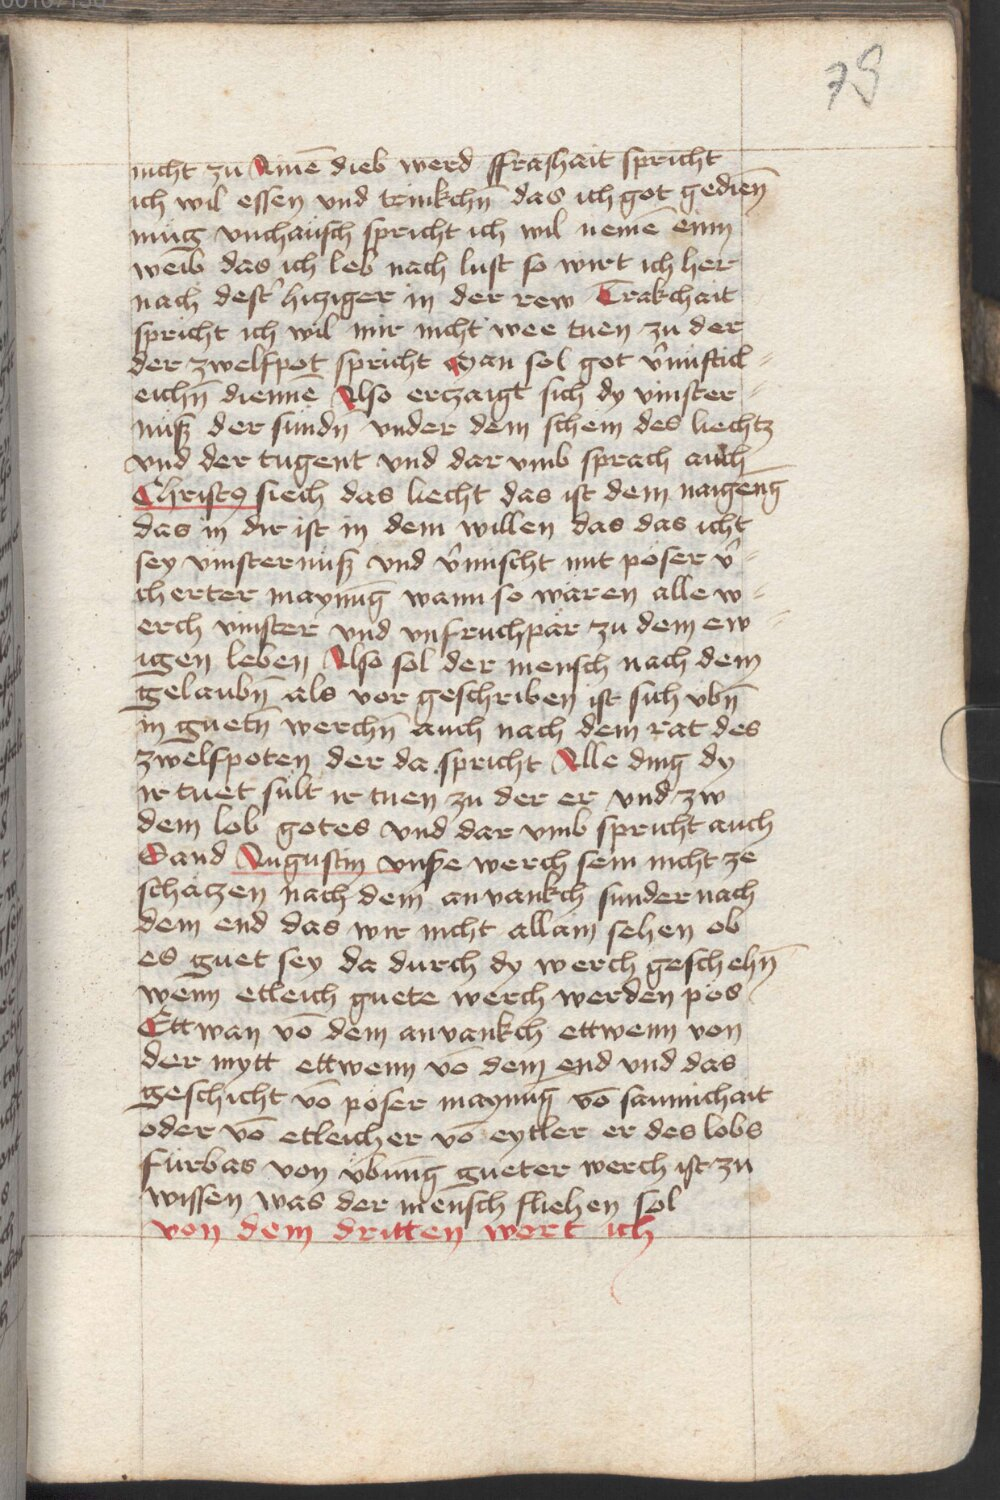 78
nicht zu Ainē dieb werd ffrashait spricht
ich wil essen vnd trinkchn̄ das ich got gedien̄
mug vnchaüsch spricht ich wil nemē einn
weib das ich leb nach lust so wirt ich her
nach dest hicziger in der rew Trakchait
spricht ich wil mir nicht wee tuen zu der
der zwelfpot spricht Man sol got v̉nüftick-
eichn̄ dienne Also erczaigt sich dy vinster-
nuß der sündn̄ vnder dem schein des liechtz
vnd der tugent vnd dar vmb sprach auch
Christꝰ siech das liecht das ist dem naigēng
das in dir ist in dem willen das das icht
sey vinsternuß vnd v̉mischt mit poser v̉-
cherter maynūg wann so wären alle w-
erch vinster vnd vnfruchpär zu dem ew-
igen leben Also sol der mensch nach dem
gelaubn̄ als vor geschriben ist sich vbn̄
in guetn̄ werchn̄ auch nach dem rat des
zwelfpoten der da spricht Alle ding dy
ir tuet sült ir tuen zu der er vnd zw
dem lob gotes vnd dar vmb spricht auch
Sand Augustin vnße werch sein nicht ze
schäczen nach dem anvankch sunder nach
dem end das wir nicht allain sehen ob
es guet sey da durch dy werch geschehn̄
wenn etleich guete werch werden pös
Ettwan vō dem anvankch ettwenn von
der mytt ettwenn vō dem end vnd das
geschicht vō pöser maynūg vō saumichait
oder vō etleicher vō eytler er des lobs
fürbas von vbūng gueter werch ist zu
wissen was der mensch fliehen sol
von dem dritten wort ich